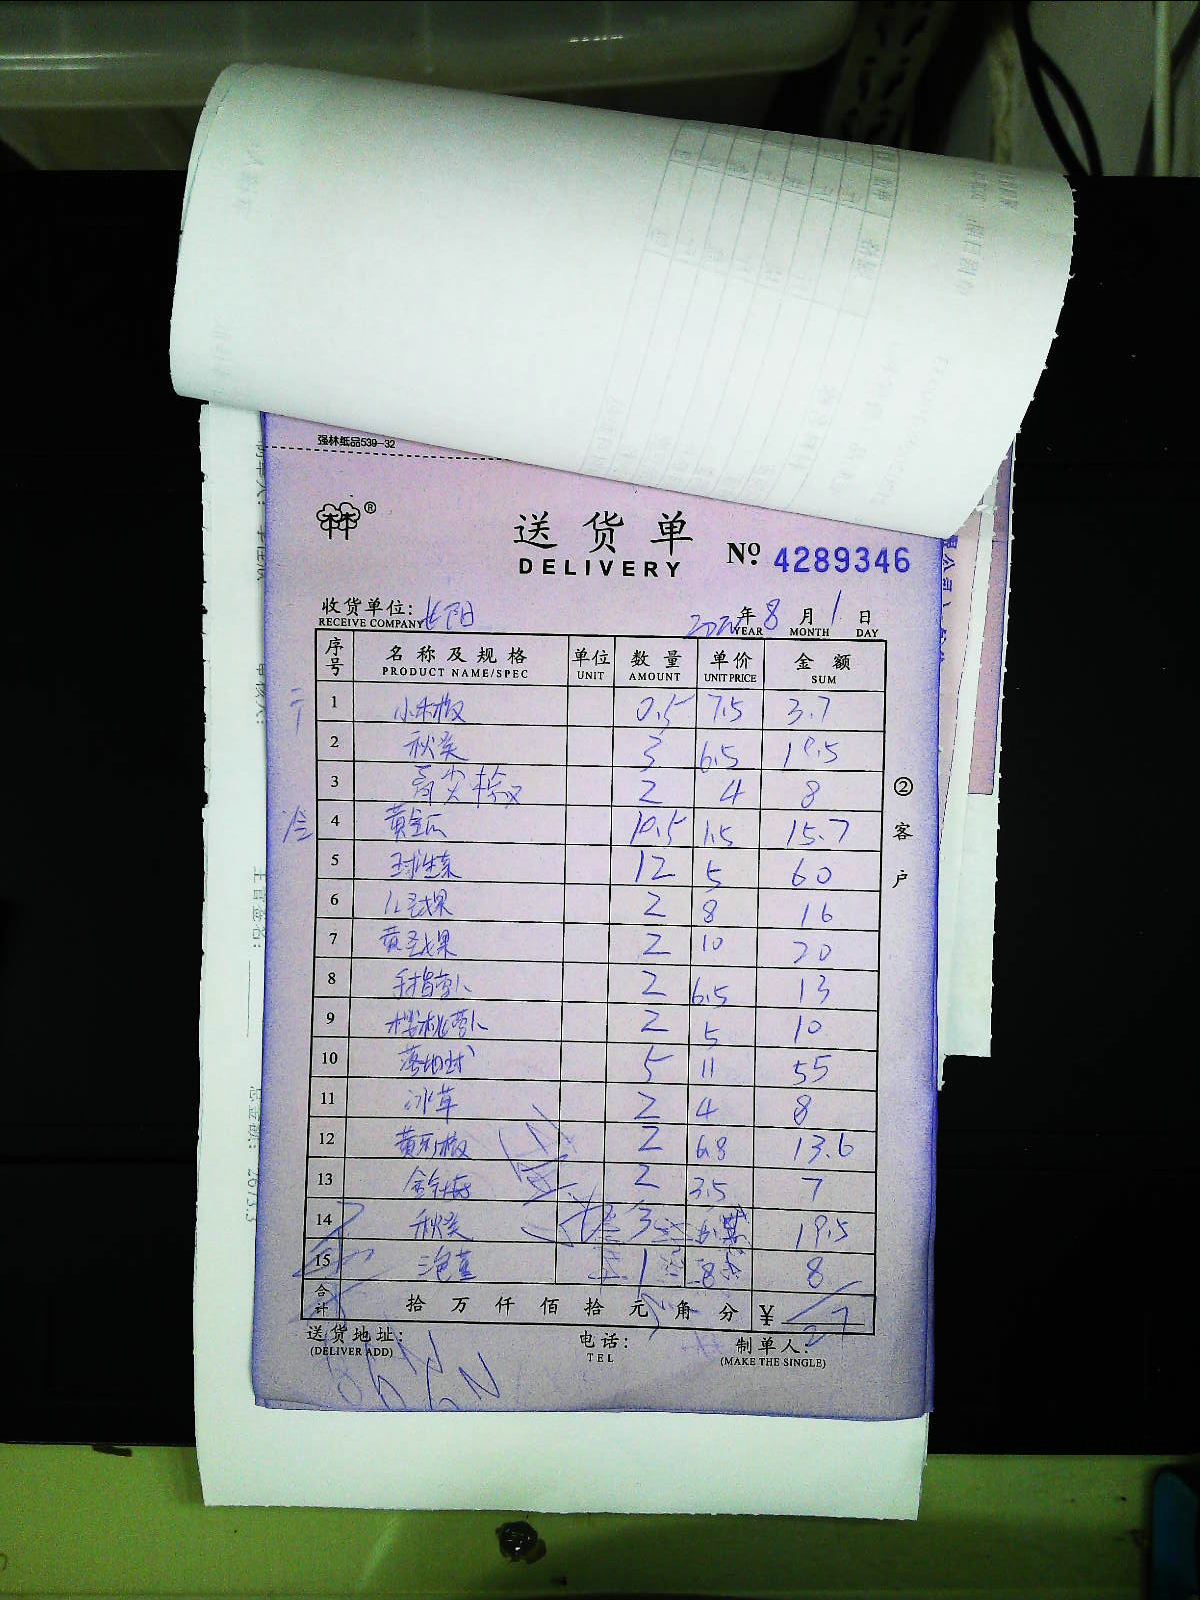 强林纸品539-32
林林®
送货单
DELIVERY
№ 4289346
收货单位: 长阳
RECEIVE COMPANY
年 8 月 1 日
YEAR MONTH DAY
序号 名称及规格 单位 数量 单价 金额
PRODUCT NAME/SPEC UNIT AMOUNT UNIT PRICE SUM
1 小米椒 0.5 7.5 3.7
2 秋葵 3 6.5 19.5
3 青尖椒 2 4 8
4 黄金瓜 10.5 1.5 15.7
5 球生菜 12 5 60
6 红圣女果 2 8 16
7 黄圣女果 2 10 20
8 手指萝卜 2 6.5 13
9 樱桃萝卜 2 5 10
10 落地球 5 11 55
11 冰草 2 4 8
12 黄彩椒 2 6.8 13.6
13 2 3.5 7
14 秋葵 3 19.5
15 1 8 8
合计 拾 万 仟 佰 拾 元 角 分 ¥
送货地址: 电话: 制单人:
(DELIVER ADD) TEL (MAKE THE SINGLE)
② 客户